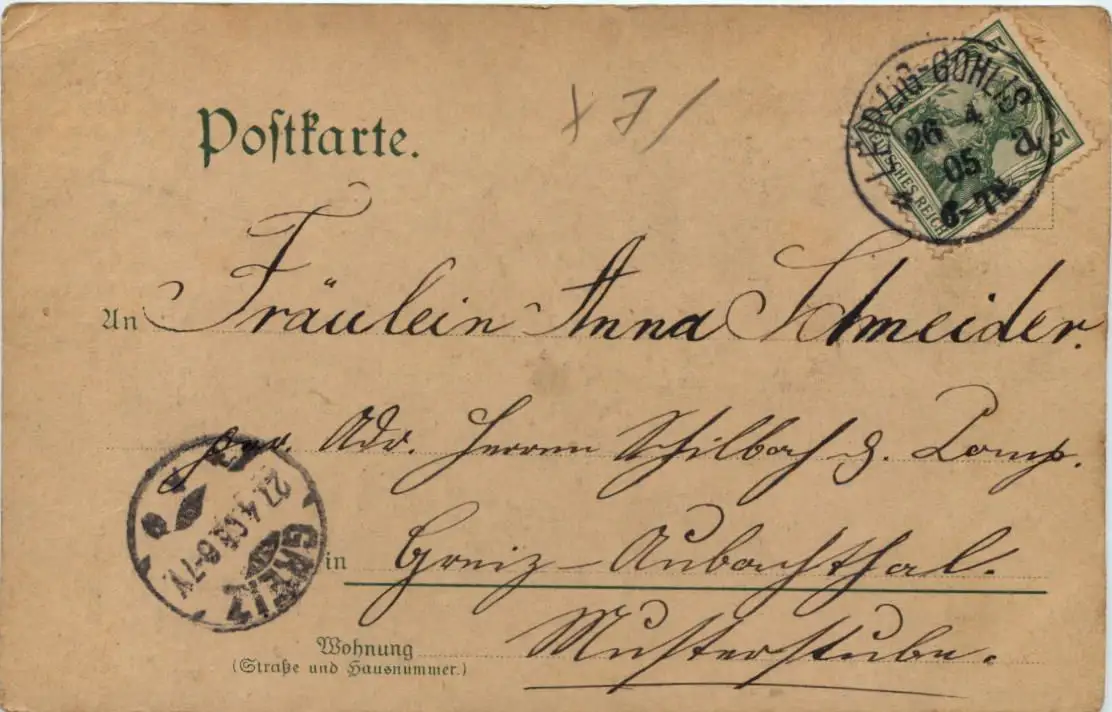 Postkarte.
LEIPZIG-GOHLIS
26 4
05
6-7N
a
5
5
DEUTSCHES REICH
An Fräulein Anna Schneider.
per. Adr. Herrn Schilbach & Comp.
in Greiz-Aubachthal.
Musterstube.
Wohnung
(Straße und Hausnummer.)
GREIZ
27.4.05 6-7V.